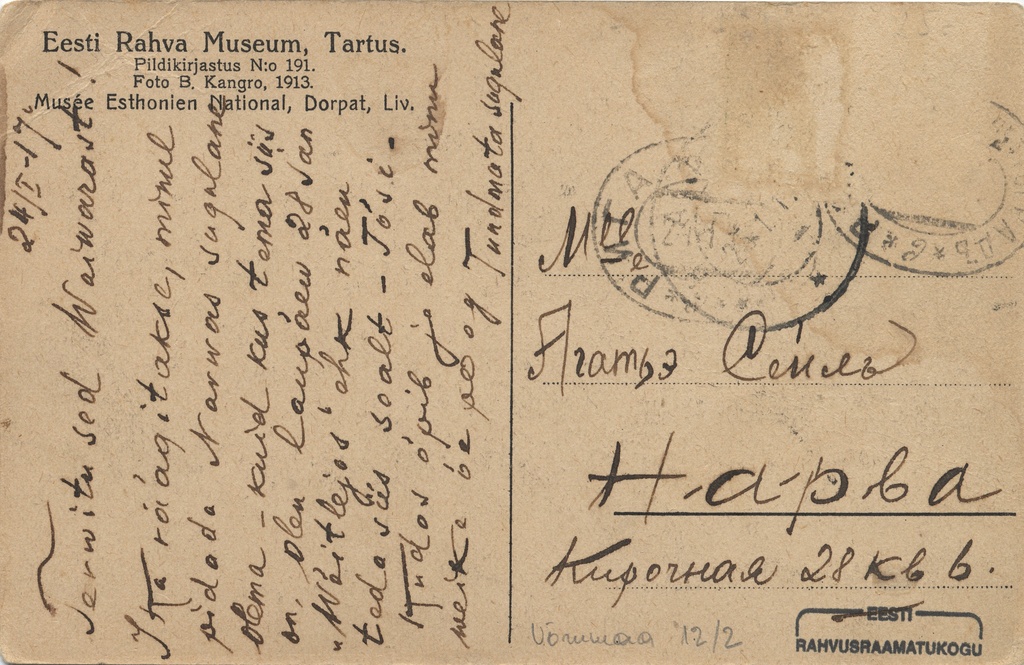 Eesti Rahva Museum, Tartus.
Pildikirjastus N:o 191.
Foto B. Kangro, 1913.
Musée Esthonien National, Dorpat, Liv.
24/I-17.
Terwitused Waiwarast!
räägitakse, minul
pidada Narwas sugulane
olema - kuid kus tema siis
on, Olen laupäew 28 Jan
"Wõitlejas" ehk näen
teda siis sealt - Tõsi.
õpib ja elab minu
weike õe poeg Tundmata sugulane
Mlle
Агатѣ Сейль
Нарва
Кирочная 28 кв 6.
Võrumaa 12/2
EESTI
RAHVUSRAAMATUKOGU